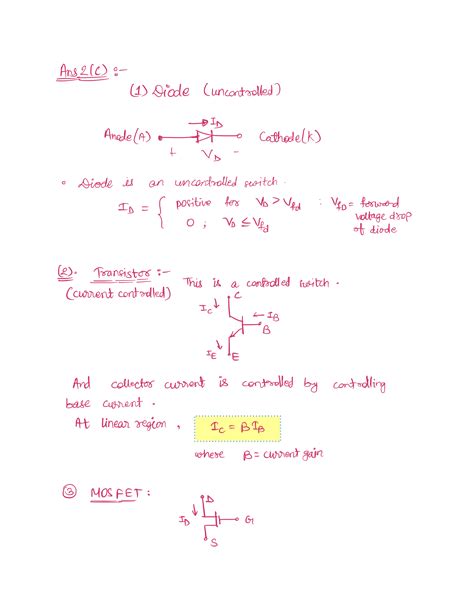 Ans 2(C) :-
(1) Diode (uncontrolled)
I_D
Anode(A) Cathode(K)
+ V_D -
∘ Diode is an uncontrolled switch.
I_D = { positive for V_D > V_fd ; V_fD = forward
0 ; V_D ≤ V_fd voltage drop
of diode
(2). Transistor :- This is a controlled switch.
(current controlled)
C
I_C I_B
B
I_E E
And collector current is controlled by controlling
base current.
At linear region, I_C = β I_B
where β = current gain
③ MOSFET :
D
I_D G
S